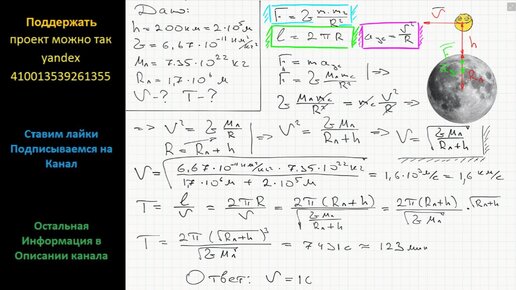 Поддержать
проект можно так
yandex
410013539261355
Ставим лайки
Подписываемся на
Канал
Остальная
Информация в
Описании канала
Дано:
h = 200 км = 2·10⁵ м
G = 6,67·10⁻¹¹ м³/кг с²
Mл = 7.35·10²² кг
Rл = 1,7·10⁶ м
V - ? T - ?
F = G m₁ m₂ / R²
l = 2πR
aцс = V²/R
F = m aцс
F = G Mл mс / R² | =>
G Mл mс / R² = mс V²/R =>
V
h
F
Rл
=> V² = G Mл/R
R = Rл + h | => V² = G Mл / (Rл + h) => V = √(G Mл / (Rл + h))
V = √(6,67·10⁻¹¹ м³/кг с² · 7.35·10²² кг / (17·10⁶ м + 2·10⁵ м)) = 1,6·10³ м/с = 1,6 км/с
T = l/V = 2πR/V = 2π(Rл+h) / √(G Mл / (Rл+h)) = 2π(Rл+h) / √(G Mл) · √(Rл+h)
T = 2π(√(Rл+h))³ / √(G Mл) = 7431с ≈ 123 мин
Ответ: V = 1с